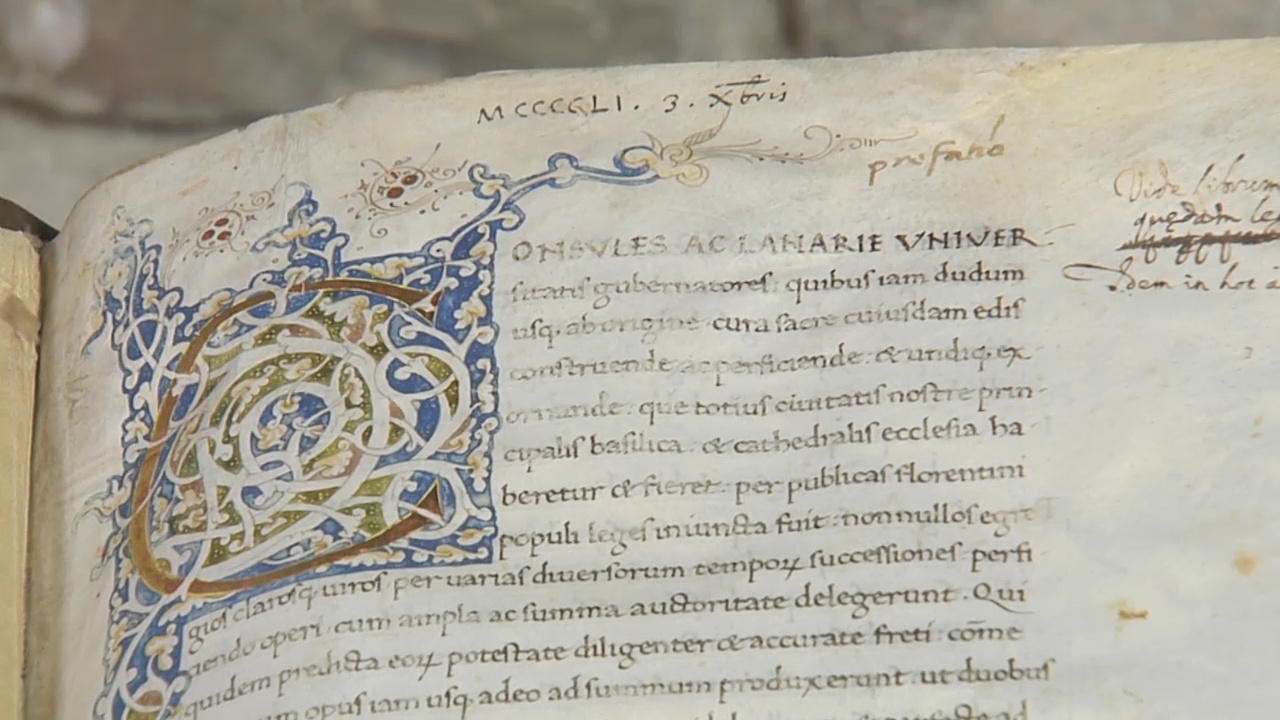 MCCCCLI . 3 . Xbris
prefatio
Vide librum
quędam le
Idem in hoc
CONSVLES AC LANARIE VNIVER
sitatis gubernatores: quibus iam dudum
usq. ab origine cura sacre cuiusdam edis
construende ac perficiende. & undiq. ex
ornande. que totius ciuitatis nostre prin-
cipalis basilica. & cathedralis ecclesia ha
beretur & fieret. per publicas florentini
populi leges iniuncta fuit: nonnullos egre
gios clarosq. uiros. per uarias diuersorum temporꝝ successiones. perfi
ciendo operi. cum ampla ac summa auctoritate delegerunt. Qui
quidem predicta eoꝝ potestate diligenter & accurate freti: com̄e
opus iam usq. adeo ad summum produxerunt. ut duobus